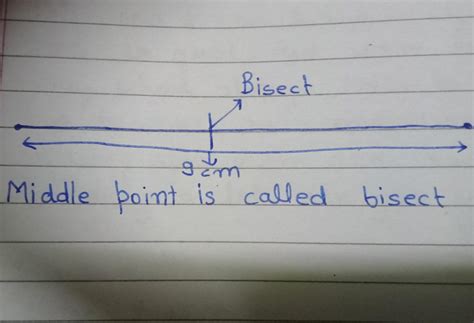 Bisect
9 cm
Middle point is called bisect